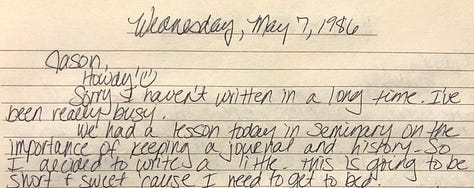 Wednesday, May 7, 1986
Jason,
Howdy!
Sorry I haven't written in a long time. I've
been really busy.
We had a lesson today in Seminary on the
importance of keeping a journal and history - So
I decided to write a little. This is going to be
short & sweet 'cause I need to get to bed.